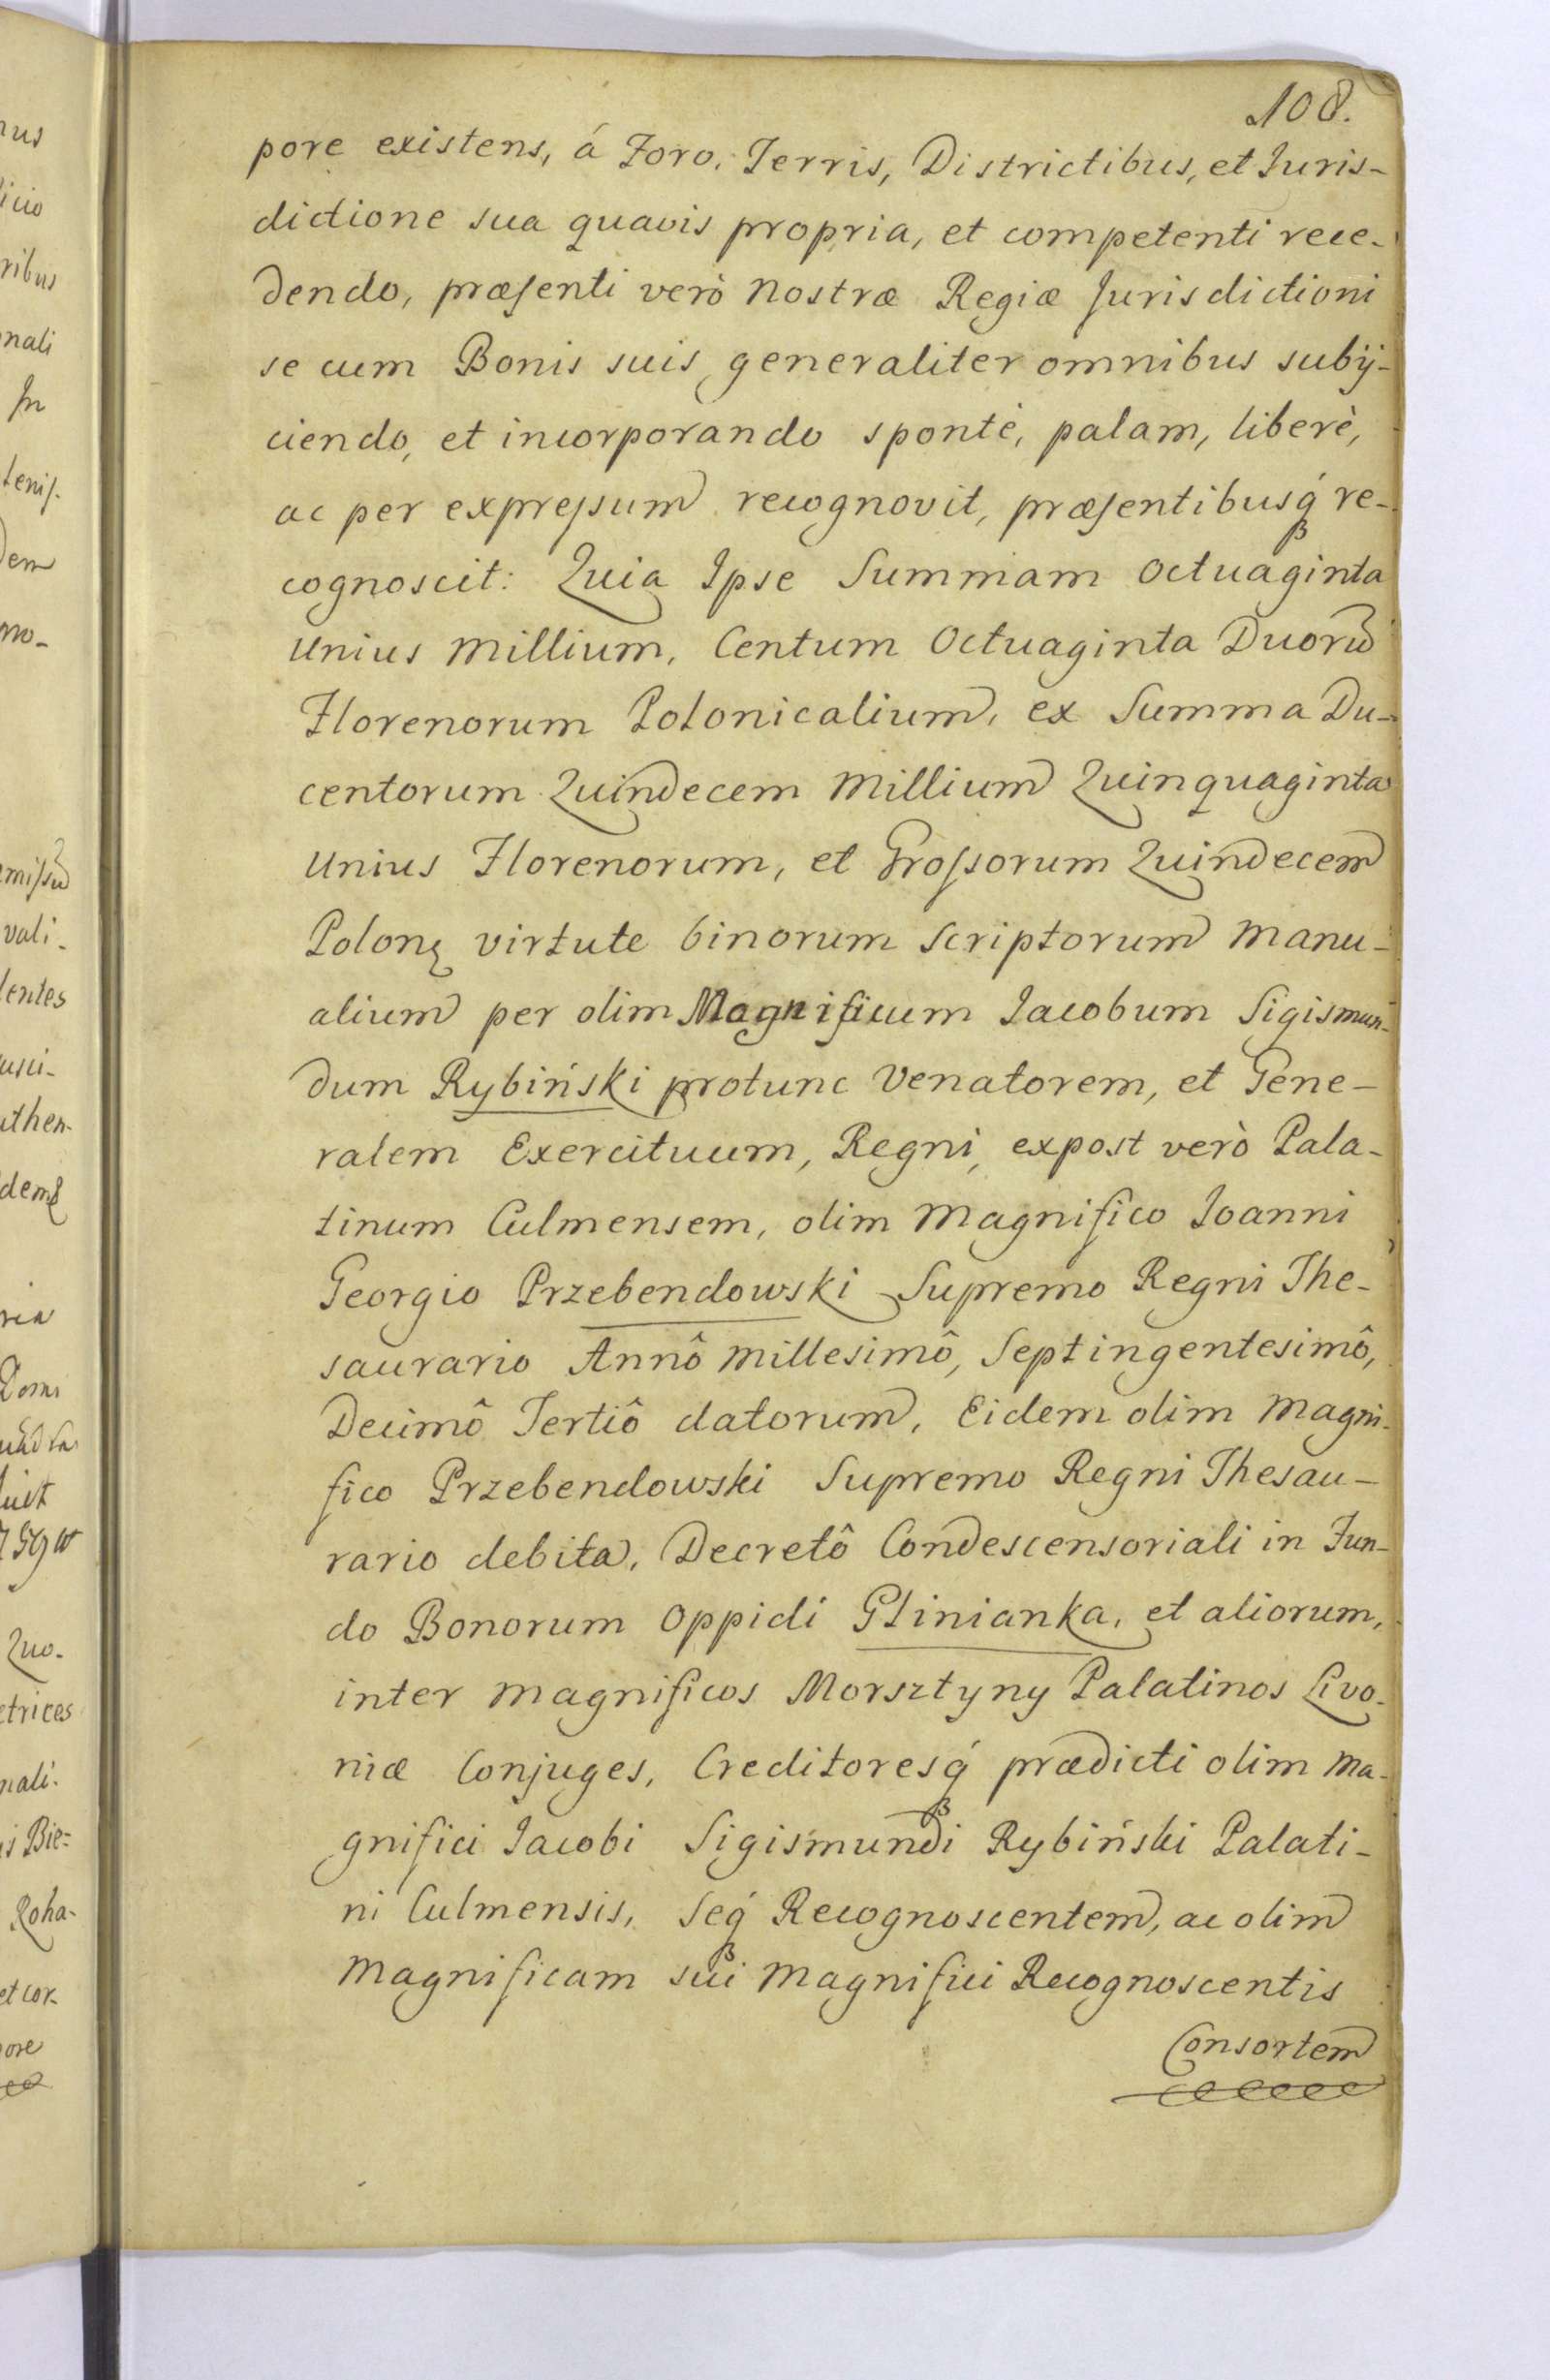 108.
pore existens, á Foro, Terris, Districtibus, et Juris-
dictione sua quavis propria, et competenti rece-
dendo, præsenti verò Nostræ Regiæ Jurisdictioni
se cum Bonis suis generaliter omnibus subij-
ciendo, et incorporando sponte, palam, liberè,
ac per expressum recognovit, præsentibusq́ re-
cognoscit: Quia Ipse Summam Octuaginta
Unius Millium, Centum Octuaginta Duorū
Florenorum Polonicalium, ex Summa Du-
centorum Quindecem Millium Quinquaginta
Unius Florenorum, et Grossorum Quindecem
Polonę virtute binorum Scriptorum Manu-
alium per olim Magnificum Jacobum Sigismun-
dum Rybiński protunc Venatorem, et Gene-
ralem Exercituum, Regni, expost verò Pala-
tinum Culmensem, olim Magnifico Joanni
Georgio Przebendowski Supremo Regni The-
saurario Annô Millesimô, Septingentesimô,
Decimô Tertiô datorum, Eidem olim Magni-
fico Przebendowski Supremo Regni Thesau-
rario debita, Decretô Condescensoriali in Fun-
do Bonorum Oppidi Glinianka, et aliorum,
inter Magnificos Morsztyny Palatinos Livo-
niæ Conjuges, Creditoresq́ prædicti olim Ma-
gnifici Jacobi Sigismundi Rybiński Palati-
ni Culmensis, Seq́ Recognoscentem, ac olim
Magnificam sui Magnifici Recognoscentis
Consortem